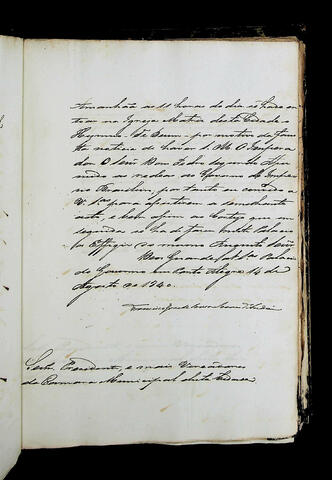 Amanhãa as 11 horas do dia se hade en
toar na Igreja Matriz desta Cidade o
Hymno Te Deum por motivo da faus
ta noticia de haver S. M. O Impera
dor O Senr Dom Pedro Segundo
as redeas do Governo do Impe
rio Brasileiro, por tanto eu convido a
V. Sas para assistirem a semelhante
acto, e bem assim ao Cortejo que em
seguida se hade fazer em Pala
cio Effigie do mesmo Augusto Senr
Deos Guarde a V. Sas Palacio
do Governo em Porto Alegre 14 de
Agosto de 1840.
Francisco José de Souza Soares d'Andrea
Senr Presidente, e mais Vereadores
da Camara Municipal desta Cidade